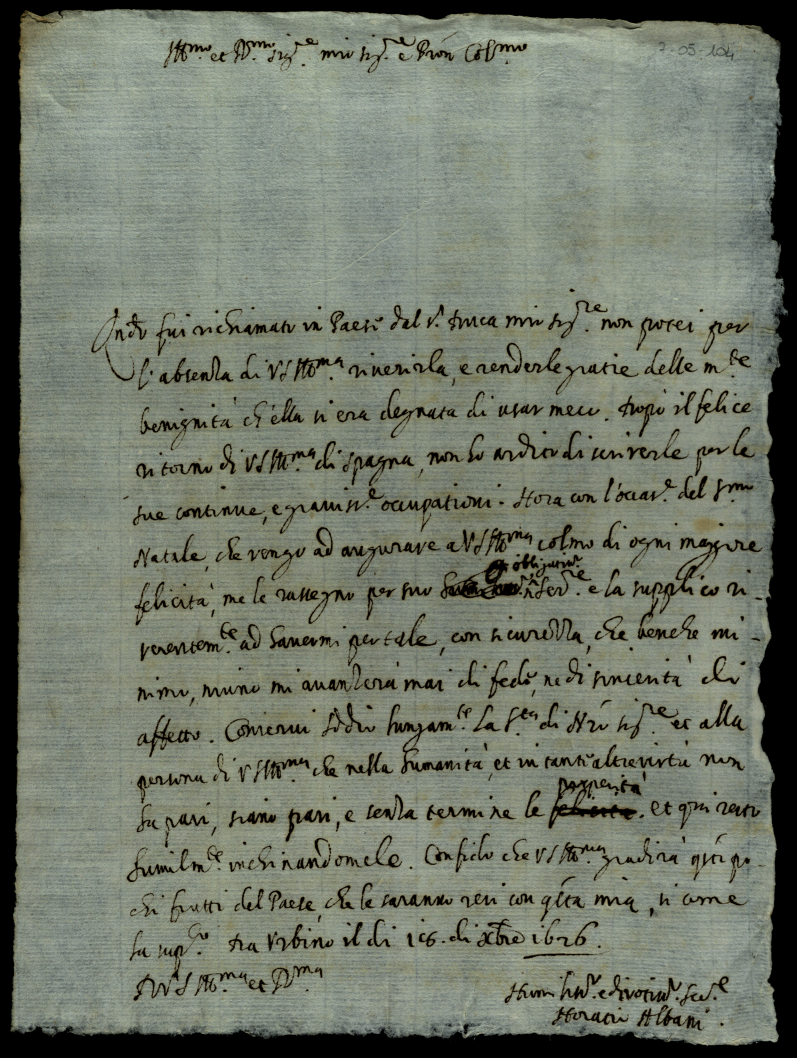 7-05-104
Ill.mo et R.mo Sig.re mio Sig.re e Pron Col.mo
Qndo fui richiamato in Paese dal S.r Duca mio Sig.re non potei per
l'absenza di VS Ill.ma riverirla, e renderle gratie delle m.te
benignità ch'ella si era degnata di usar meco. Dopo il felice
ritorno di VS Ill.ma di Spagna, non ho ardito di scriverle per le
sue continue, e graviss.e occupationi. Hora con l'occas.e del S.mo
Natale, che vengo ad augurare a VS Ill.ma colmo di ogni maggiore
felicità, me le rassegno per suo obligatiss.o Ser.re e la supplico ri-
verentem.te ad havermi per tale, con sicurezza, che benche mi-
nimo, niuno mi avanzerà mai di fede, ne di sincerità di
affetto. Conservi Iddio lungam.te la S.tà di N.ro Sig.re et alla
persona di VS Ill.ma che nella humanità, et in tante altre virtù non
ha pari, siano pari, e senza termine le prosperità. et qui resto
humilm.te inchinandomele. Confido che VS Ill.ma gradirà q.sti po-
chi frutti del Paese, che le saranno resi con q.sta mia, si come
la sup.co Da Urbino il di 16. di Xbre 1626.
D VS Ill.ma et R.ma
Humiliss.o e divotiss.o Ser.re
Horatio Albani.